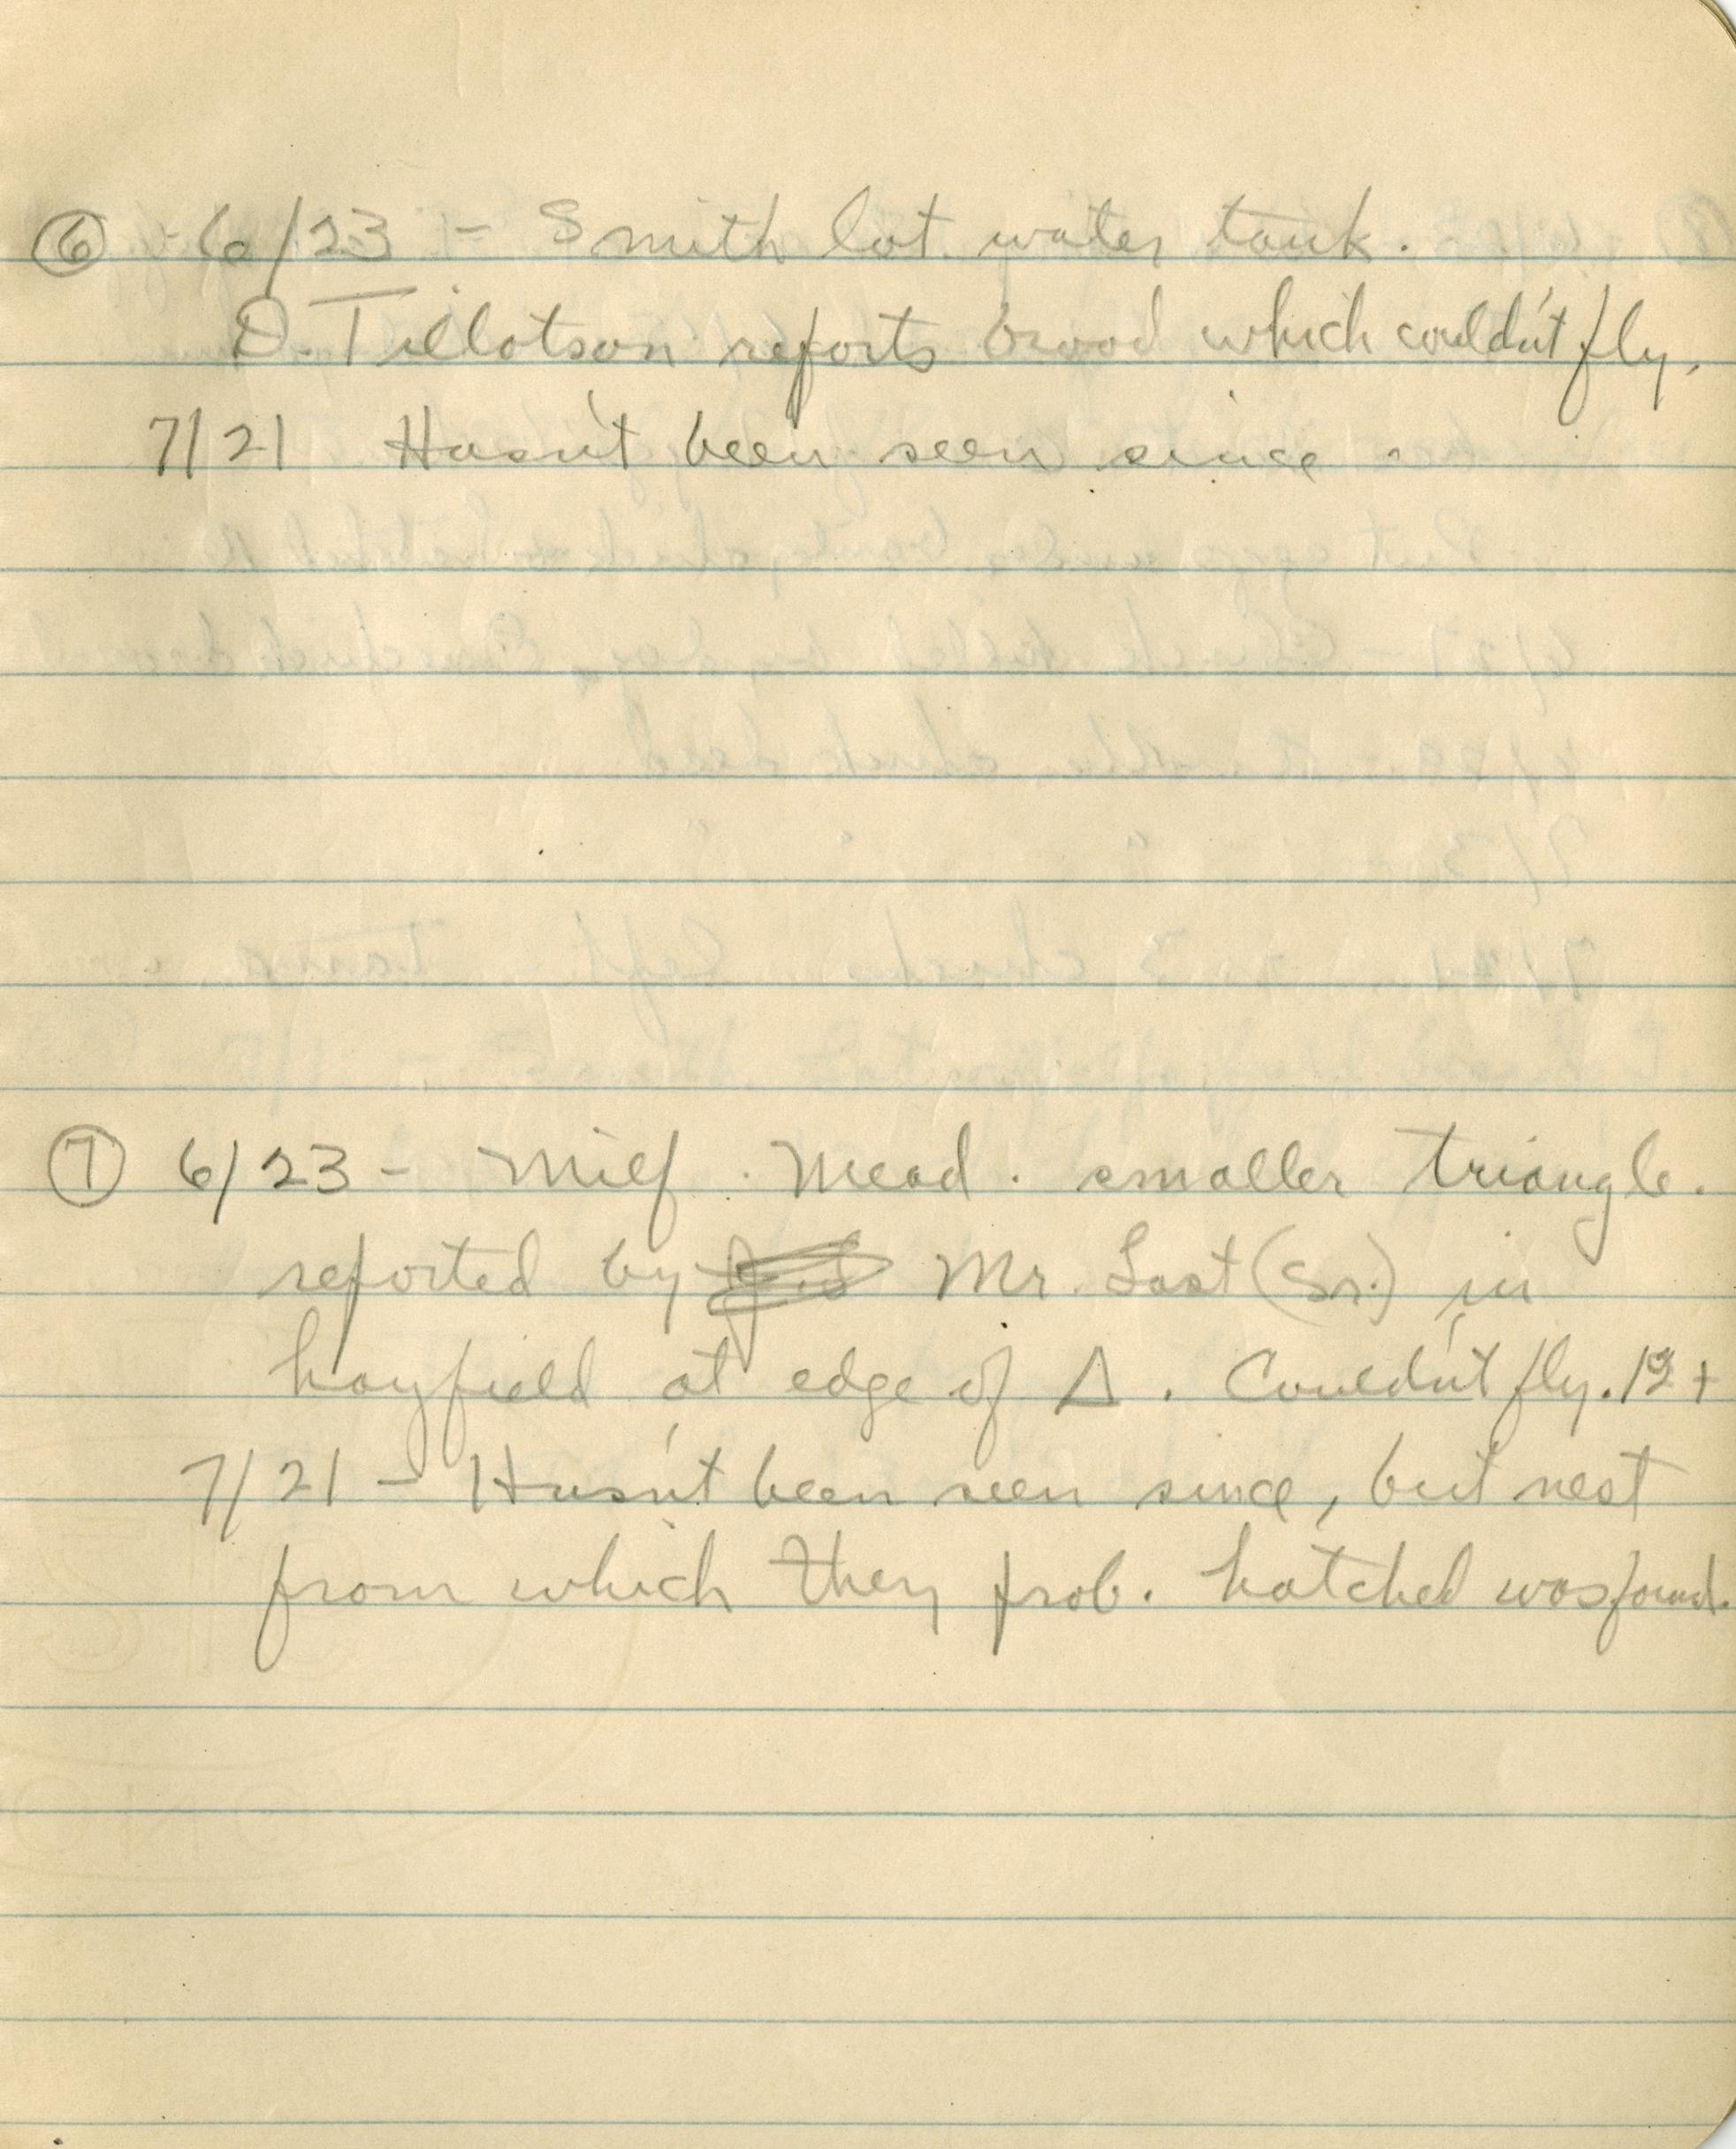 ⑥ - 6/23 - Smith lot water tank.
D. Tillotson reports brood which couldn't fly.
7/21 Hasn't been seen since.
⑦ 6/23 - Milf. Mead. smaller triangle.
reported by Mr. Last (Sr.) in
hayfield at edge of Δ. Couldn't fly. 12+
7/21 - Hasn't been seen since, but nest
from which they prob. hatched was found.